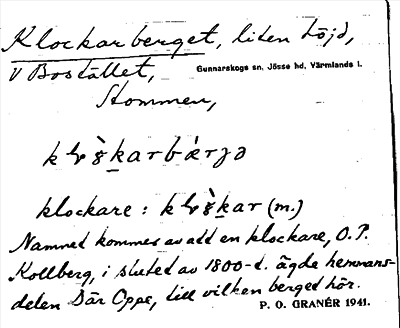 Klockarberget, liten höjd,
V Bostället,
Gunnarskogs sn, Jösse hd, Värmlands l.
Stommen,
klockare :
(m.)
Namnet kommer av att en klockare, O.P.
Kollberg, i slutet av 1800-t. ägde hemmans-
delen Där Oppe, till vilken berget hör.
P. O. GRANÉR 1941.